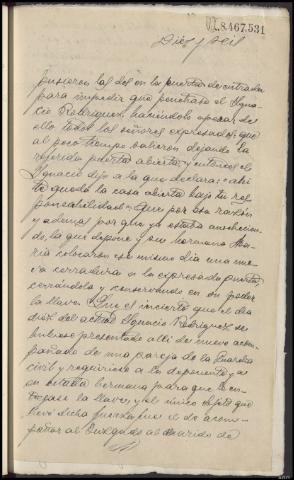 A.8.467.531
Diez y seis
pusieron los dos en la puerta de entrada
para impedir que penetrase el Igna-
cio Rodriguez, haciéndolo apesar de
ello todos los señores expresados; que
al poco tiempo salieron dejando la
referida puerta abierta, y entonces el
Ignacio dijo a la que declara: ahi
te queda la casa abierta bajo tu res-
ponsabilidad. Que por esa razón
y ademas por que ya estaba
de la que depone y su hermana Ma-
ria colocaron ese mismo dia una nue-
va cerradura en la expresada puerta
cerrándola y conservando en su poder
la llave. Que es incierto que el dia
diez del actual Ignacio Rodriguez se
hubiese presentado alli de nuevo acom-
pañado de una pareja de la Guardia
civil y requiriendo a la deponente y a
su hermana para que le en-
tregase la llave, y el único objeto que
llevó dicha fuerza fue el de acom-
pañar al Juzgado al marido de